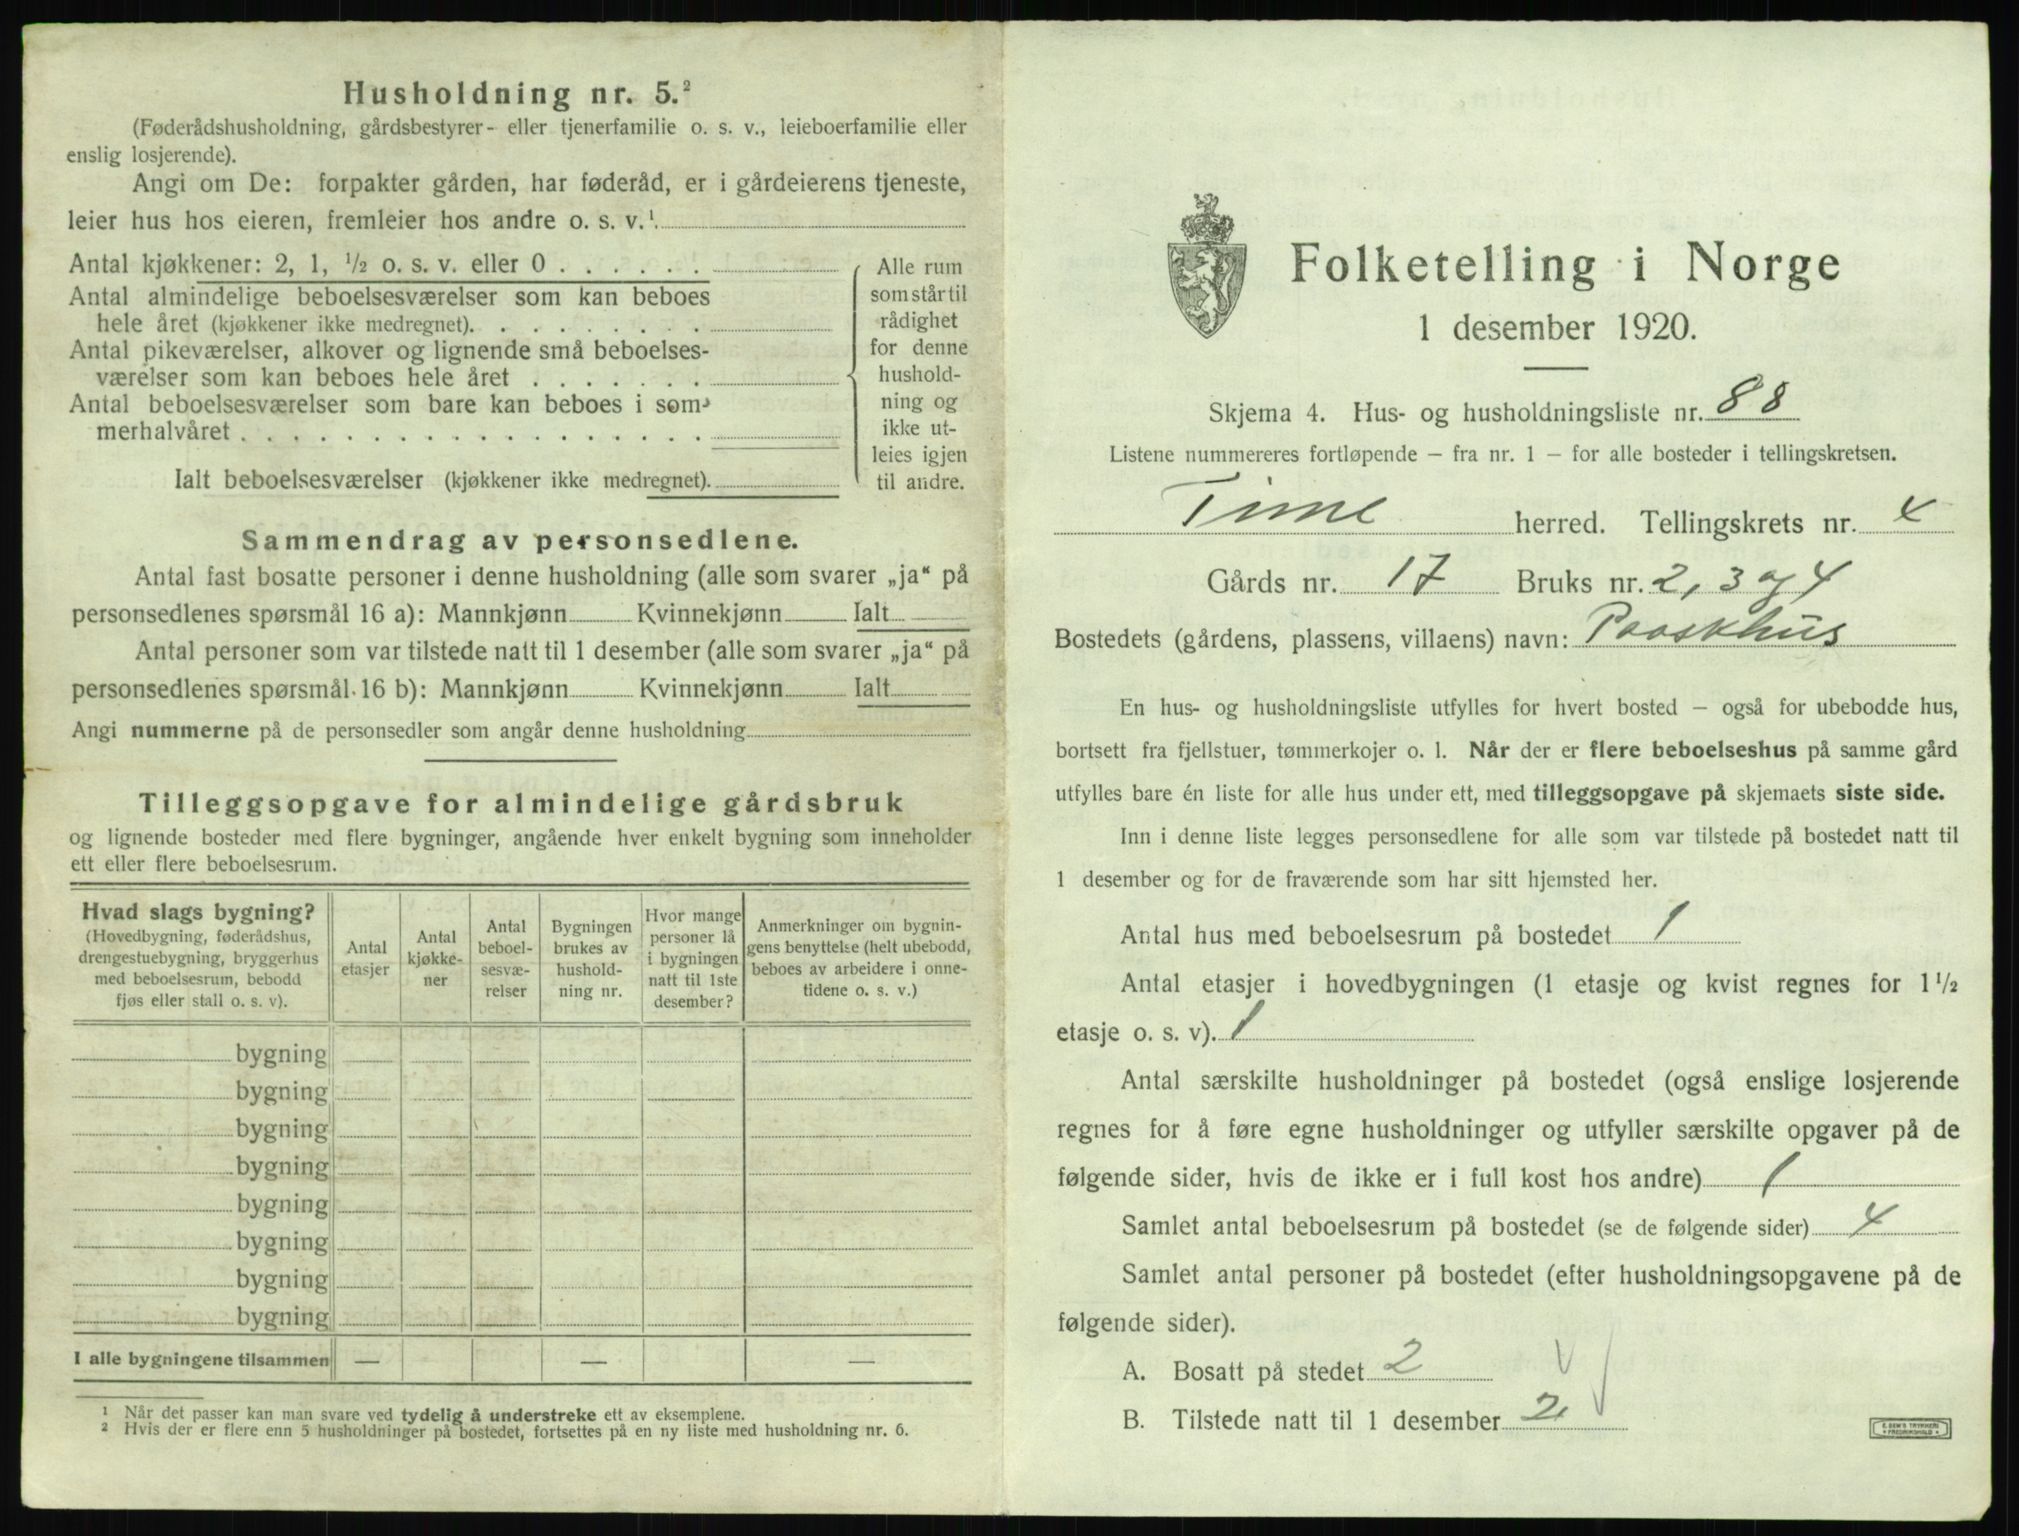 Husholdning nr. 5.²
(Føderådshusholdning, gårdsbestyrer- eller tjenerfamilie o. s. v., leieboerfamilie eller
enslig losjerende).
Angi om De: forpakter gården, har føderåd, er i gårdeierens tjeneste,
leier hus hos eieren, fremleier hos andre o. s. v.¹
Antal kjøkkener: 2, 1, ½ o. s. v. eller 0
Antal almindelige beboelsesværelser som kan beboes
hele året (kjøkkener ikke medregnet).
Antal pikeværelser, alkover og lignende små beboelses-
værelser som kan beboes hele året
Antal beboelsesværelser som bare kan beboes i som-
merhalvåret
Ialt beboelsesværelser (kjøkkener ikke medregnet).
Alle rum
som står til
rådighet
for denne
hushold-
ning og
ikke ut-
leies igjen
til andre.
Sammendrag av personsedlene.
Antal fast bosatte personer i denne husholdning (alle som svarer „ja“ på
personsedlenes spørsmål 16 a): Mannkjønn Kvinnekjønn Ialt
Antal personer som var tilstede natt til 1 desember (alle som svarer „ja“ på
personsedlenes spørsmål 16 b): Mannkjønn Kvinnekjønn Ialt
Angi nummerne på de personsedler som angår denne husholdning
Tilleggsopgave for almindelige gårdsbruk
og lignende bosteder med flere bygninger, angående hver enkelt bygning som inneholder
ett eller flere beboelsesrum.
Hvad slags bygning?
(Hovedbygning, føderådshus,
drengestuebygning, bryggerhus
med beboelsesrum, bebodd
fjøs eller stall o. s. v).
Antal
etasjer
Antal
kjøkke-
ner
Antal
beboel-
sesvæ-
relser
Bygningen
brukes av
hushold-
ning nr.
Hvor mange
personer lå
i bygningen
natt til 1ste
desember?
Anmerkninger om bygnin-
gens benyttelse (helt ubebodd,
beboes av arbeidere i onne-
tidene o. s. v.)
bygning
bygning
bygning
bygning
bygning
bygning
bygning
bygning
I alle bygningene tilsammen — — —
¹ Når det passer kan man svare ved tydelig å understreke ett av eksemplene.
² Hvis der er flere enn 5 husholdninger på bostedet, fortsettes på en ny liste med husholdning nr. 6.
Folketelling i Norge
1 desember 1920.
Skjema 4. Hus- og husholdningsliste nr. 88
Listene nummereres fortløpende – fra nr. 1 – for alle bosteder i tellingskretsen.
Time herred. Tellingskrets nr. 4
Gårds nr. 17 Bruks nr. 2, 3 og 4
Bostedets (gårdens, plassens, villaens) navn: Paaskhus
En hus- og husholdningsliste utfylles for hvert bosted – også for ubebodde hus,
bortsett fra fjellstuer, tømmerkojer o. l. Når der er flere beboelseshus på samme gård
utfylles bare én liste for alle hus under ett, med tilleggsopgave på skjemaets siste side.
Inn i denne liste legges personsedlene for alle som var tilstede på bostedet natt til
1 desember og for de fraværende som har sitt hjemsted her.
Antal hus med beboelsesrum på bostedet 1
Antal etasjer i hovedbygningen (1 etasje og kvist regnes for 1½
etasje o. s. v). 1
Antal særskilte husholdninger på bostedet (også enslige losjerende
regnes for å føre egne husholdninger og utfyller særskilte opgaver på de
følgende sider, hvis de ikke er i full kost hos andre) 1
Samlet antal beboelsesrum på bostedet (se de følgende sider) 4
Samlet antal personer på bostedet (efter husholdningsopgavene på de
følgende sider).
A. Bosatt på stedet 2
B. Tilstede natt til 1 desember 2
E. SEM'S TRYKKERI
FREDRIKSHALD